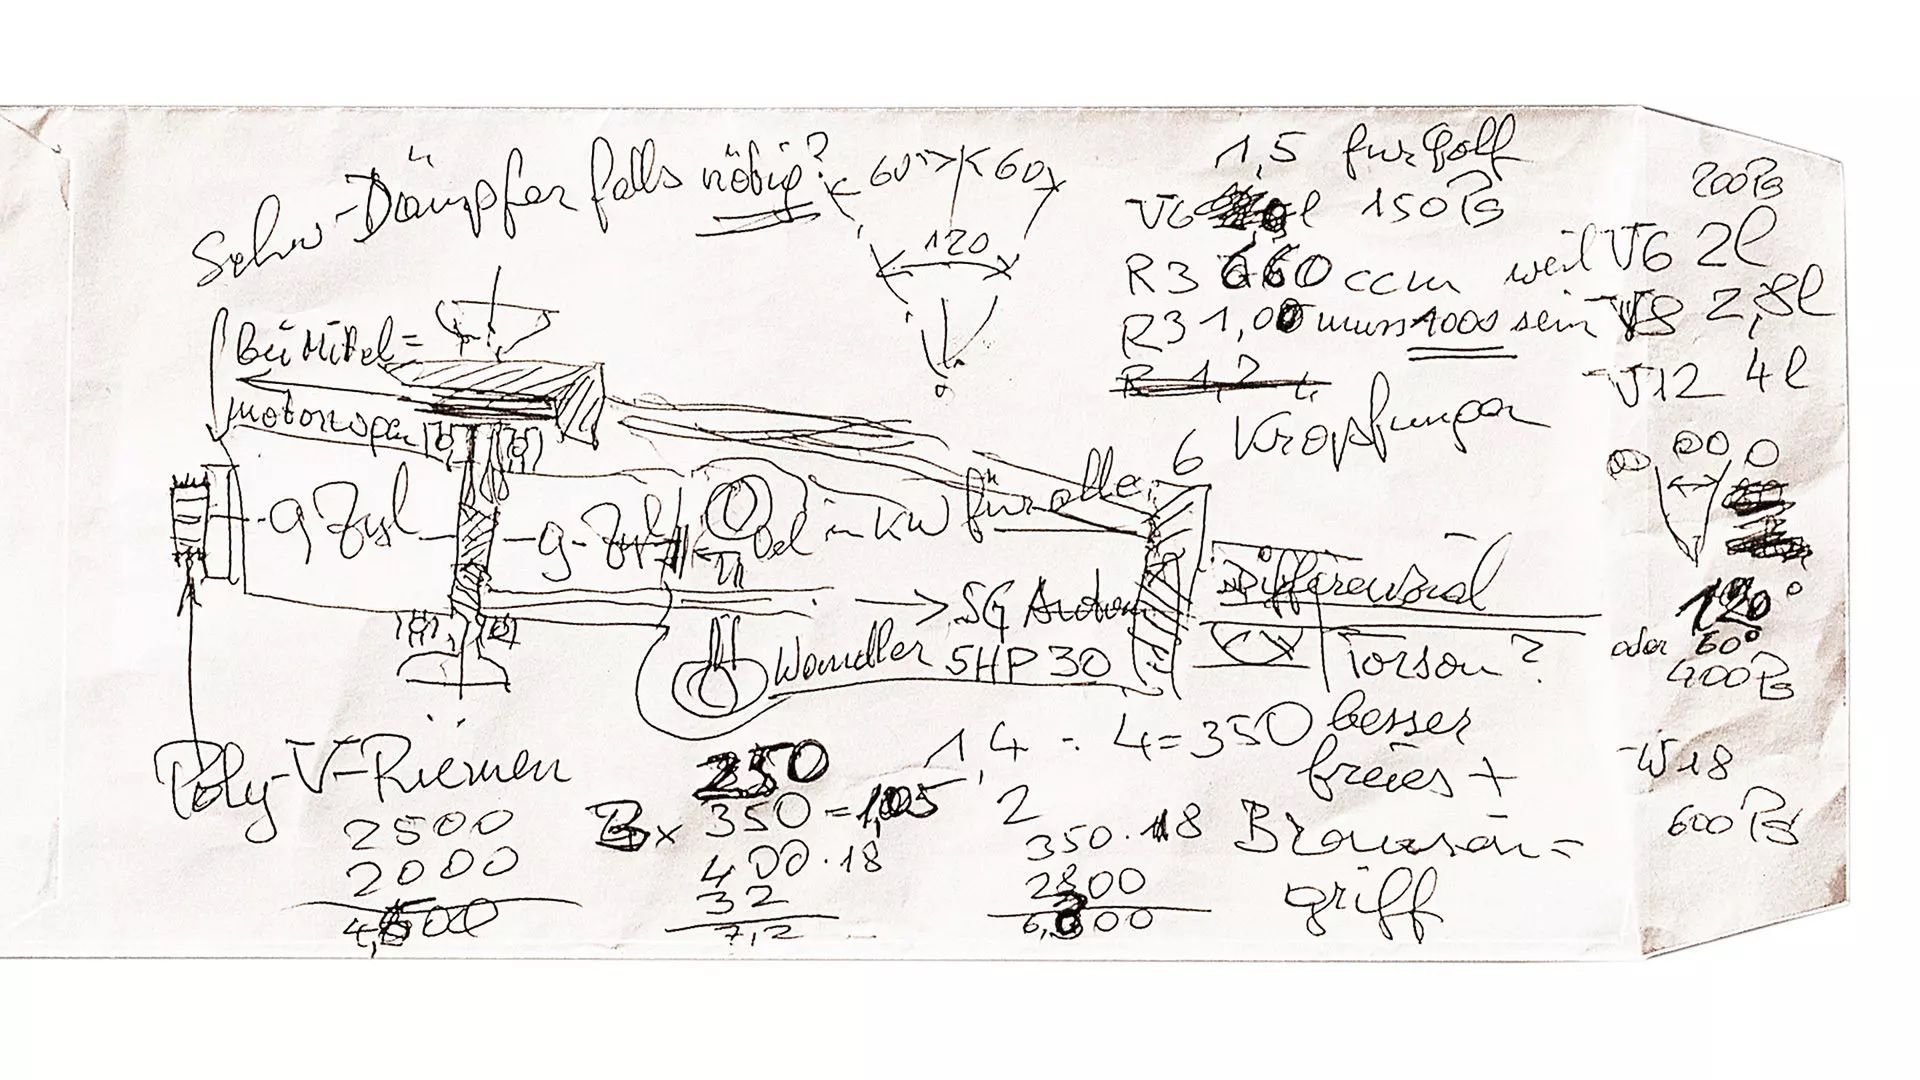 Schw-Dämpfer falls nötig?
60° 60
120
1,5 für Golf
V6 l 150 PS
R3 660 ccm weil V6 2l
R3 1,00 muss 1000 sein V8 2,8l
R 1,2
V12 4l
200 PS
6 Kröpfungen
Bei Mittel=
motorwagen
9 Zyl
9-Zyl
Oel in KW für alle
120°
oder 60°
400 PS
W18
600 PS
→ 5G Autom
Wandler 5HP30
Differenzial
Torson?
besser
freies +
Browsen=
griff
Poly-V-Riemen
2500
2000
4,500
350
350 = 1,05
400 · 18
32
7,2
1,4 : 4 = 350
2
350 · 18
2800
6,300